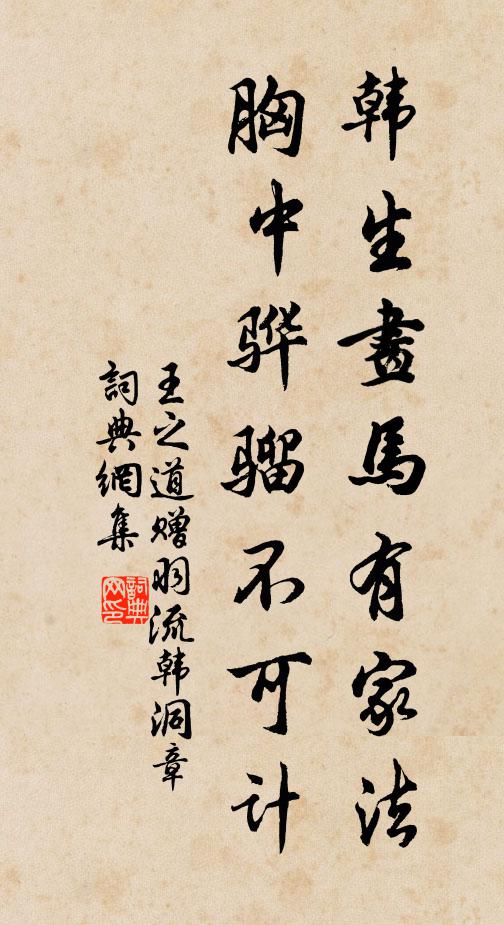 韩生畫馬有家法
胸中骅骝不可计
王之道赠羽流韩洞章
詞典網集
詞典网印